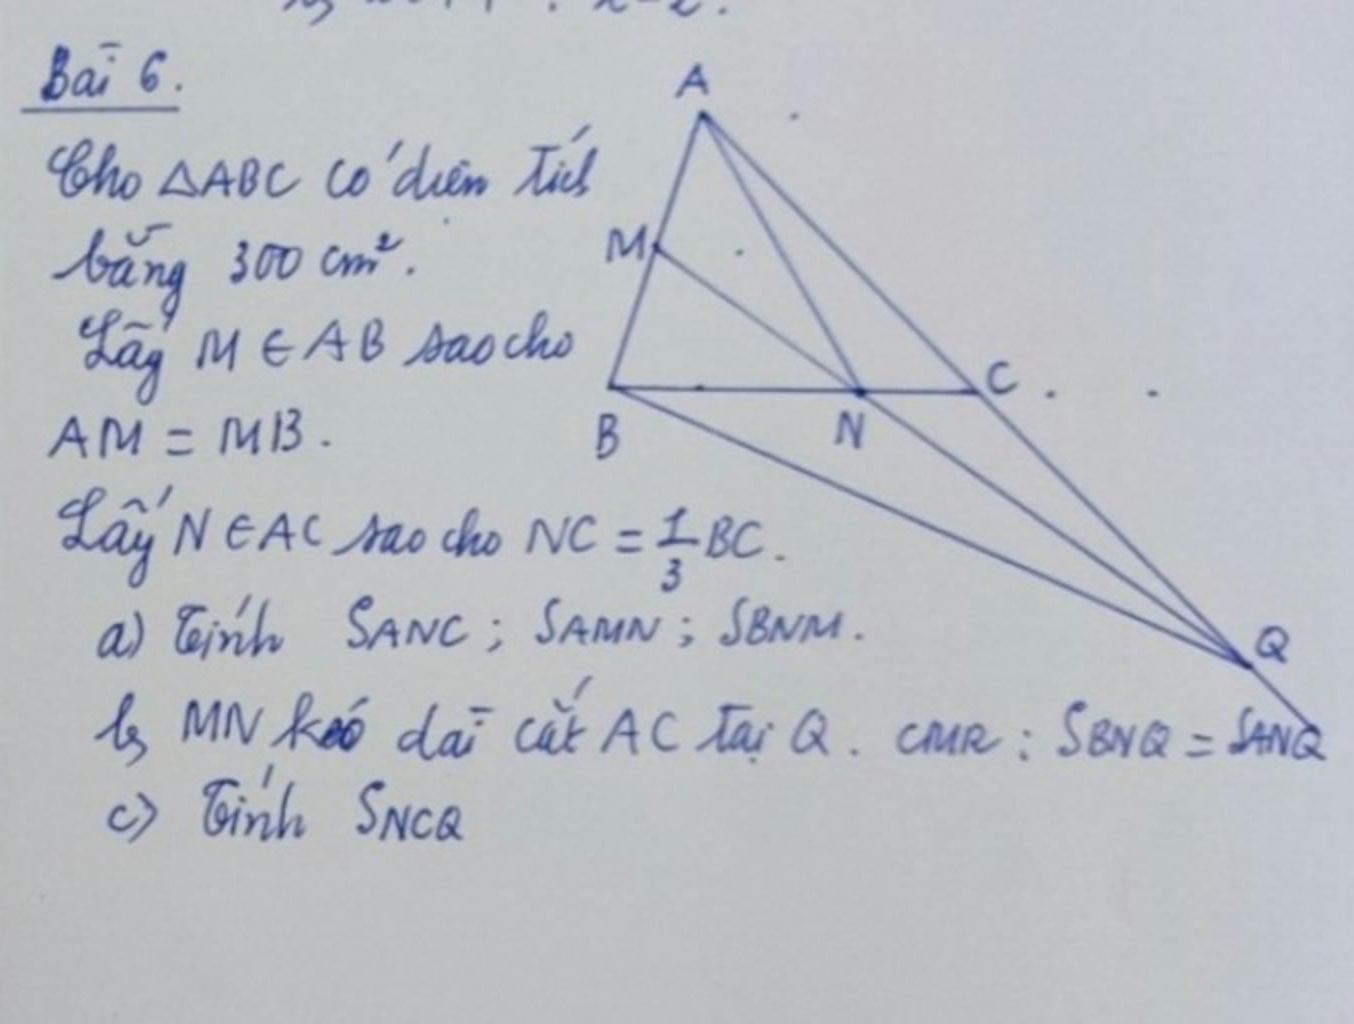 Bài 6.
Cho △ABC có diện tích
bằng 300 cm².
Lấy M ∈ AB sao cho
AM = MB.
Lấy N ∈ AC sao cho NC = 1/3 BC.
a) Tính SANC ; SAMN ; SBNM.
b) MN kéo dài cắt AC tại Q. CMR : SBNQ = SANQ
c) Tính SNCQ
A
M
B
N
C
Q